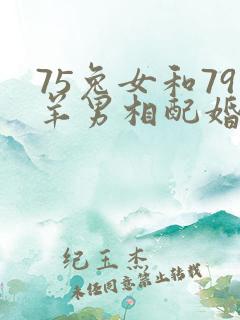 75兔女和79
羊男相配婚
纪玉杰
未经同意禁止转载